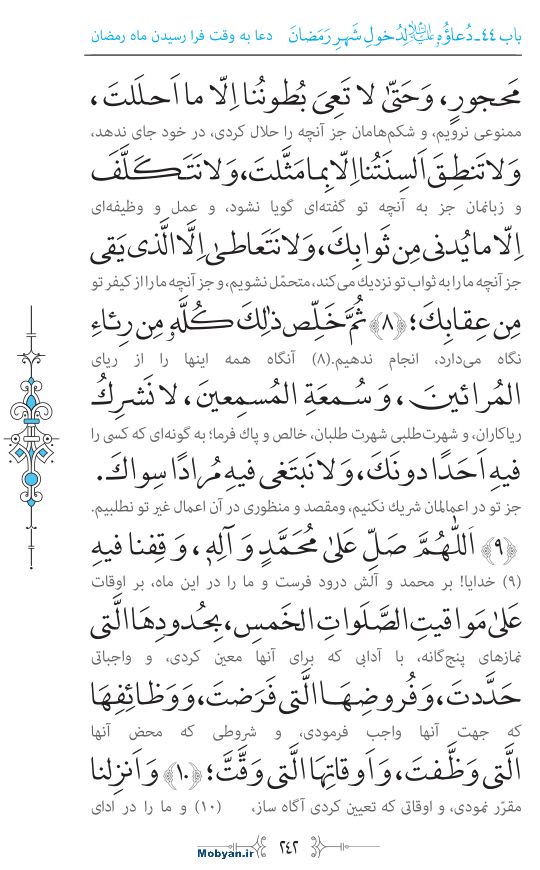 باب ۴۴-دُعاؤُهُ عَلَيْهِ‌السَّلامُ لِدُخولِ شَهرِ رَمَضانَ دعا به وقت فرا رسیدن ماه رمضان
مَحجورٍ، وَحَتّىٰ لا تَعِىَ بُطونُنا اِلّا ما اَحلَلتَ،
ممنوعی نرویم، و شکم‌هامان جز آنچه را حلال کردی، در خود جای ندهد،
وَلا تَنطِقَ اَلسِنَتُنا اِلّا بِما مَثَّلتَ، وَلا نَتَكَلَّفَ
و زبانمان جز به آنچه تو گفته‌ای گویا نشود، و عمل و وظیفه‌ای
اِلّا ما يُدنى مِن ثَوابِكَ، وَلا نَتَعاطىٰ اِلَّا الَّذى يَقى
جز آنچه ما را به ثواب تو نزدیك می‌کند، متحمّل نشویم، و جز آنچه ما را از کیفر تو
مِن عِقابِكَ؛ ﴿۸﴾ ثُمَّ خَلِّص ذٰلِكَ كُلَّهُ مِن رِئاءِ
نگاه می‌دارد، انجام ندهیم.(۸) آنگاه همه اینها را از ریای
المُرائينَ، وَ سُمعَةِ المُسمِعينَ، لا نَشرِكُ
ریاکاران، و شهرت‌طلبی شهرت طلبان، خالص و پاك فرما؛ به گونه‌ای که کسی را
فيهِ اَحَدًا دونَكَ، وَلا نَبتَغى فيهِ مُرادًا سِواكَ.
جز تو در اعمالمان شریك نکنیم، ومقصد و منظوری در آن اعمال غیر تو نطلبیم.
﴿۹﴾ اَللّٰهُمَّ صَلِّ عَلىٰ مُحَمَّدٍ وَ آلِهِ، وَ قِفنا فيهِ
(۹) خدایا! بر محمد و آلش درود فرست و ما را در این ماه، بر اوقات
عَلىٰ مَواقيتِ الصَّلَواتِ الخَمسِ، بِحُدودِهَا الَّتى
نمازهای پنج‌گانه، با آدابی که برای آنها معین کردی، و واجباتی
حَدَّدتَ، وَ فُروضِهَا الَّتى فَرَضتَ، وَ وَظائِفِهَا
که جهت آنها واجب فرمودی، و شروطی که محض آنها
الَّتى وَظَّفتَ، وَ اَوقاتِهَا الَّتى وَقَّتَّ؛ ﴿۱۰﴾ وَ اَنزِلنا
مقرّر نمودی، و اوقاتی که تعیین کردی آگاه ساز، (۱۰) و ما را در ادای
۲۴۲
Mobyan.ir